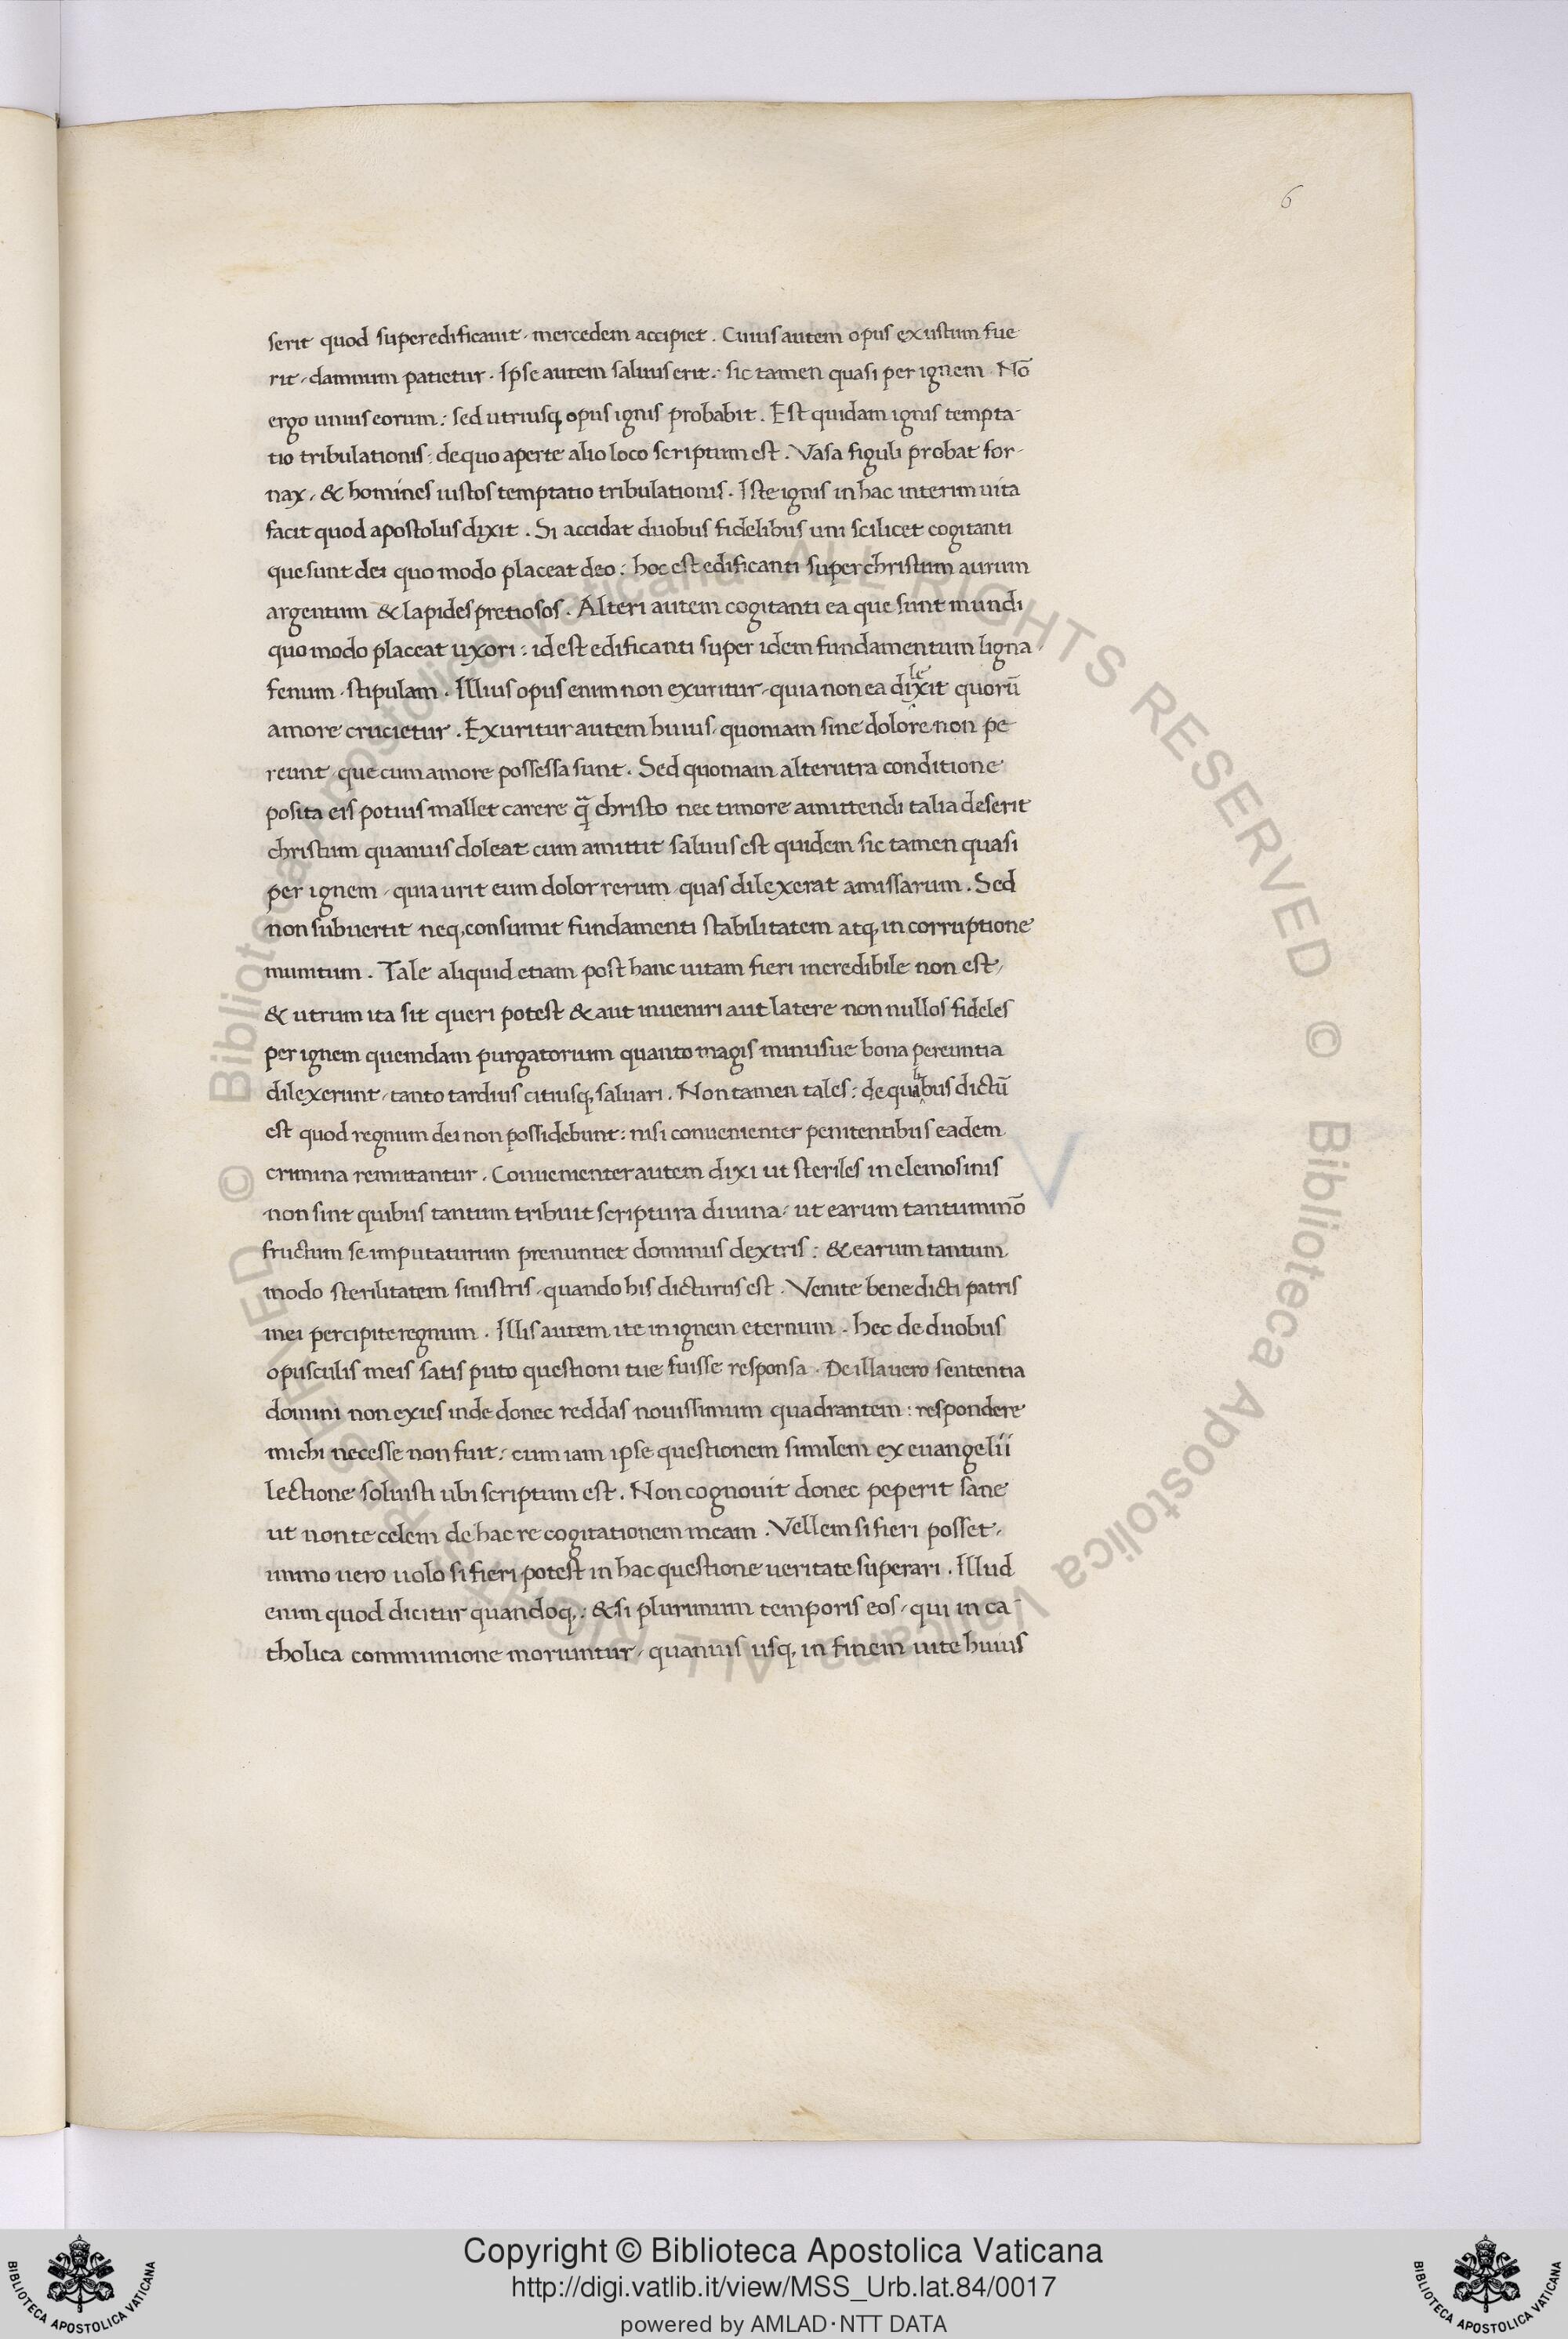 6
serit quod superedificauit, mercedem accipiet. Cuius autem opus exustum fue
rit, damnum patietur. Ipse autem saluus erit: sic tamen quasi per ignem. Nō
ergo unius eorum: sed utriusq, opus ignis probabit. Est quidam ignis tempta-
tio tribulationis: de quo aperte alio loco scriptum est. Vasa figuli probat for-
nax, & homines iustos temptatio tribulationis. Iste ignis in hac interim uita
facit quod apostolus dixit. Si accidat duobus fidelibus uni scilicet cogitanti
que sunt dei quo modo placeat deo: hoc est edificanti super christum aurum
argentum & lapides pretiosos. Alteri autem cogitanti ea que sunt mundi
quo modo placeat uxori: id est edificanti super idem fundamentum ligna,
fenum, stipulam. Illius opus enim non exuritur, quia non ea dilexit quorū
amore crucietur. Exuritur autem huius, quoniam sine dolore non pe
reunt, que cum amore possessa sunt. Sed quoniam alterutra conditione
posita eis potius mallet carere q̄ christo nec timore amittendi talia deserit
christum quanuis doleat cum amittit saluus est quidem sic tamen quasi
per ignem, quia urit eum dolor rerum, quas dilexerat amissarum. Sed
non subuertit neq, consumit fundamenti stabilitatem atq, in corruptione
munitum. Tale aliquid etiam post hanc uitam fieri incredibile non est,
& utrum ita sit queri potest & aut inueniri aut latere non nullos fideles
per ignem quemdam purgatorium quanto magis minusue bona pereuntia
dilexerunt, tanto tardius citiusq, saluari. Non tamen tales: de quibus dictū
est quod regnum dei non possidebunt: nisi conuenienter penitentibus eadem
crimina remittantur. Conuenienter autem dixi ut steriles in elemosinis
non sint quibus tantum tribuit scriptura diuina, ut earum tantummō
fructum se imputaturum prenuntiet dominus dextris: & earum tantum
modo sterilitatem sinistris, quando his dicturus est. Venite benedicti patris
mei percipite regnum. Illis autem ite in ignem eternum. hec de duobus
opusculis meis satis puto questioni tue fuisse responsa. De illa uero sententia
domini non exies inde donec reddas nouissimum quadrantem: respondere
michi necesse non fuit: cum iam ipse questionem similem ex euangelii
lectione soluisti ubi scriptum est. Non cognouit donec peperit sane
ut non te celem de hac re cogitationem meam. Vellem si fieri posset,
immo uero uolo si fieri potest in hac questione ueritate superari. Illud
enim quod dicitur quandoq,: & si plurimum temporis eos, qui in ca-
tholica communione moriuntur, quanuis usq, in finem uite huius
© Biblioteca Apostolica Vaticana ALL RIGHTS RESERVED © Biblioteca Apostolica Vaticana ALL RIGHTS RESERVED
Copyright © Biblioteca Apostolica Vaticana
http://digi.vatlib.it/view/MSS_Urb.lat.84/0017
powered by AMLAD·NTT DATA
BIBLIOTECA APOSTOLICA VATICANA
BIBLIOTECA APOSTOLICA VATICANA